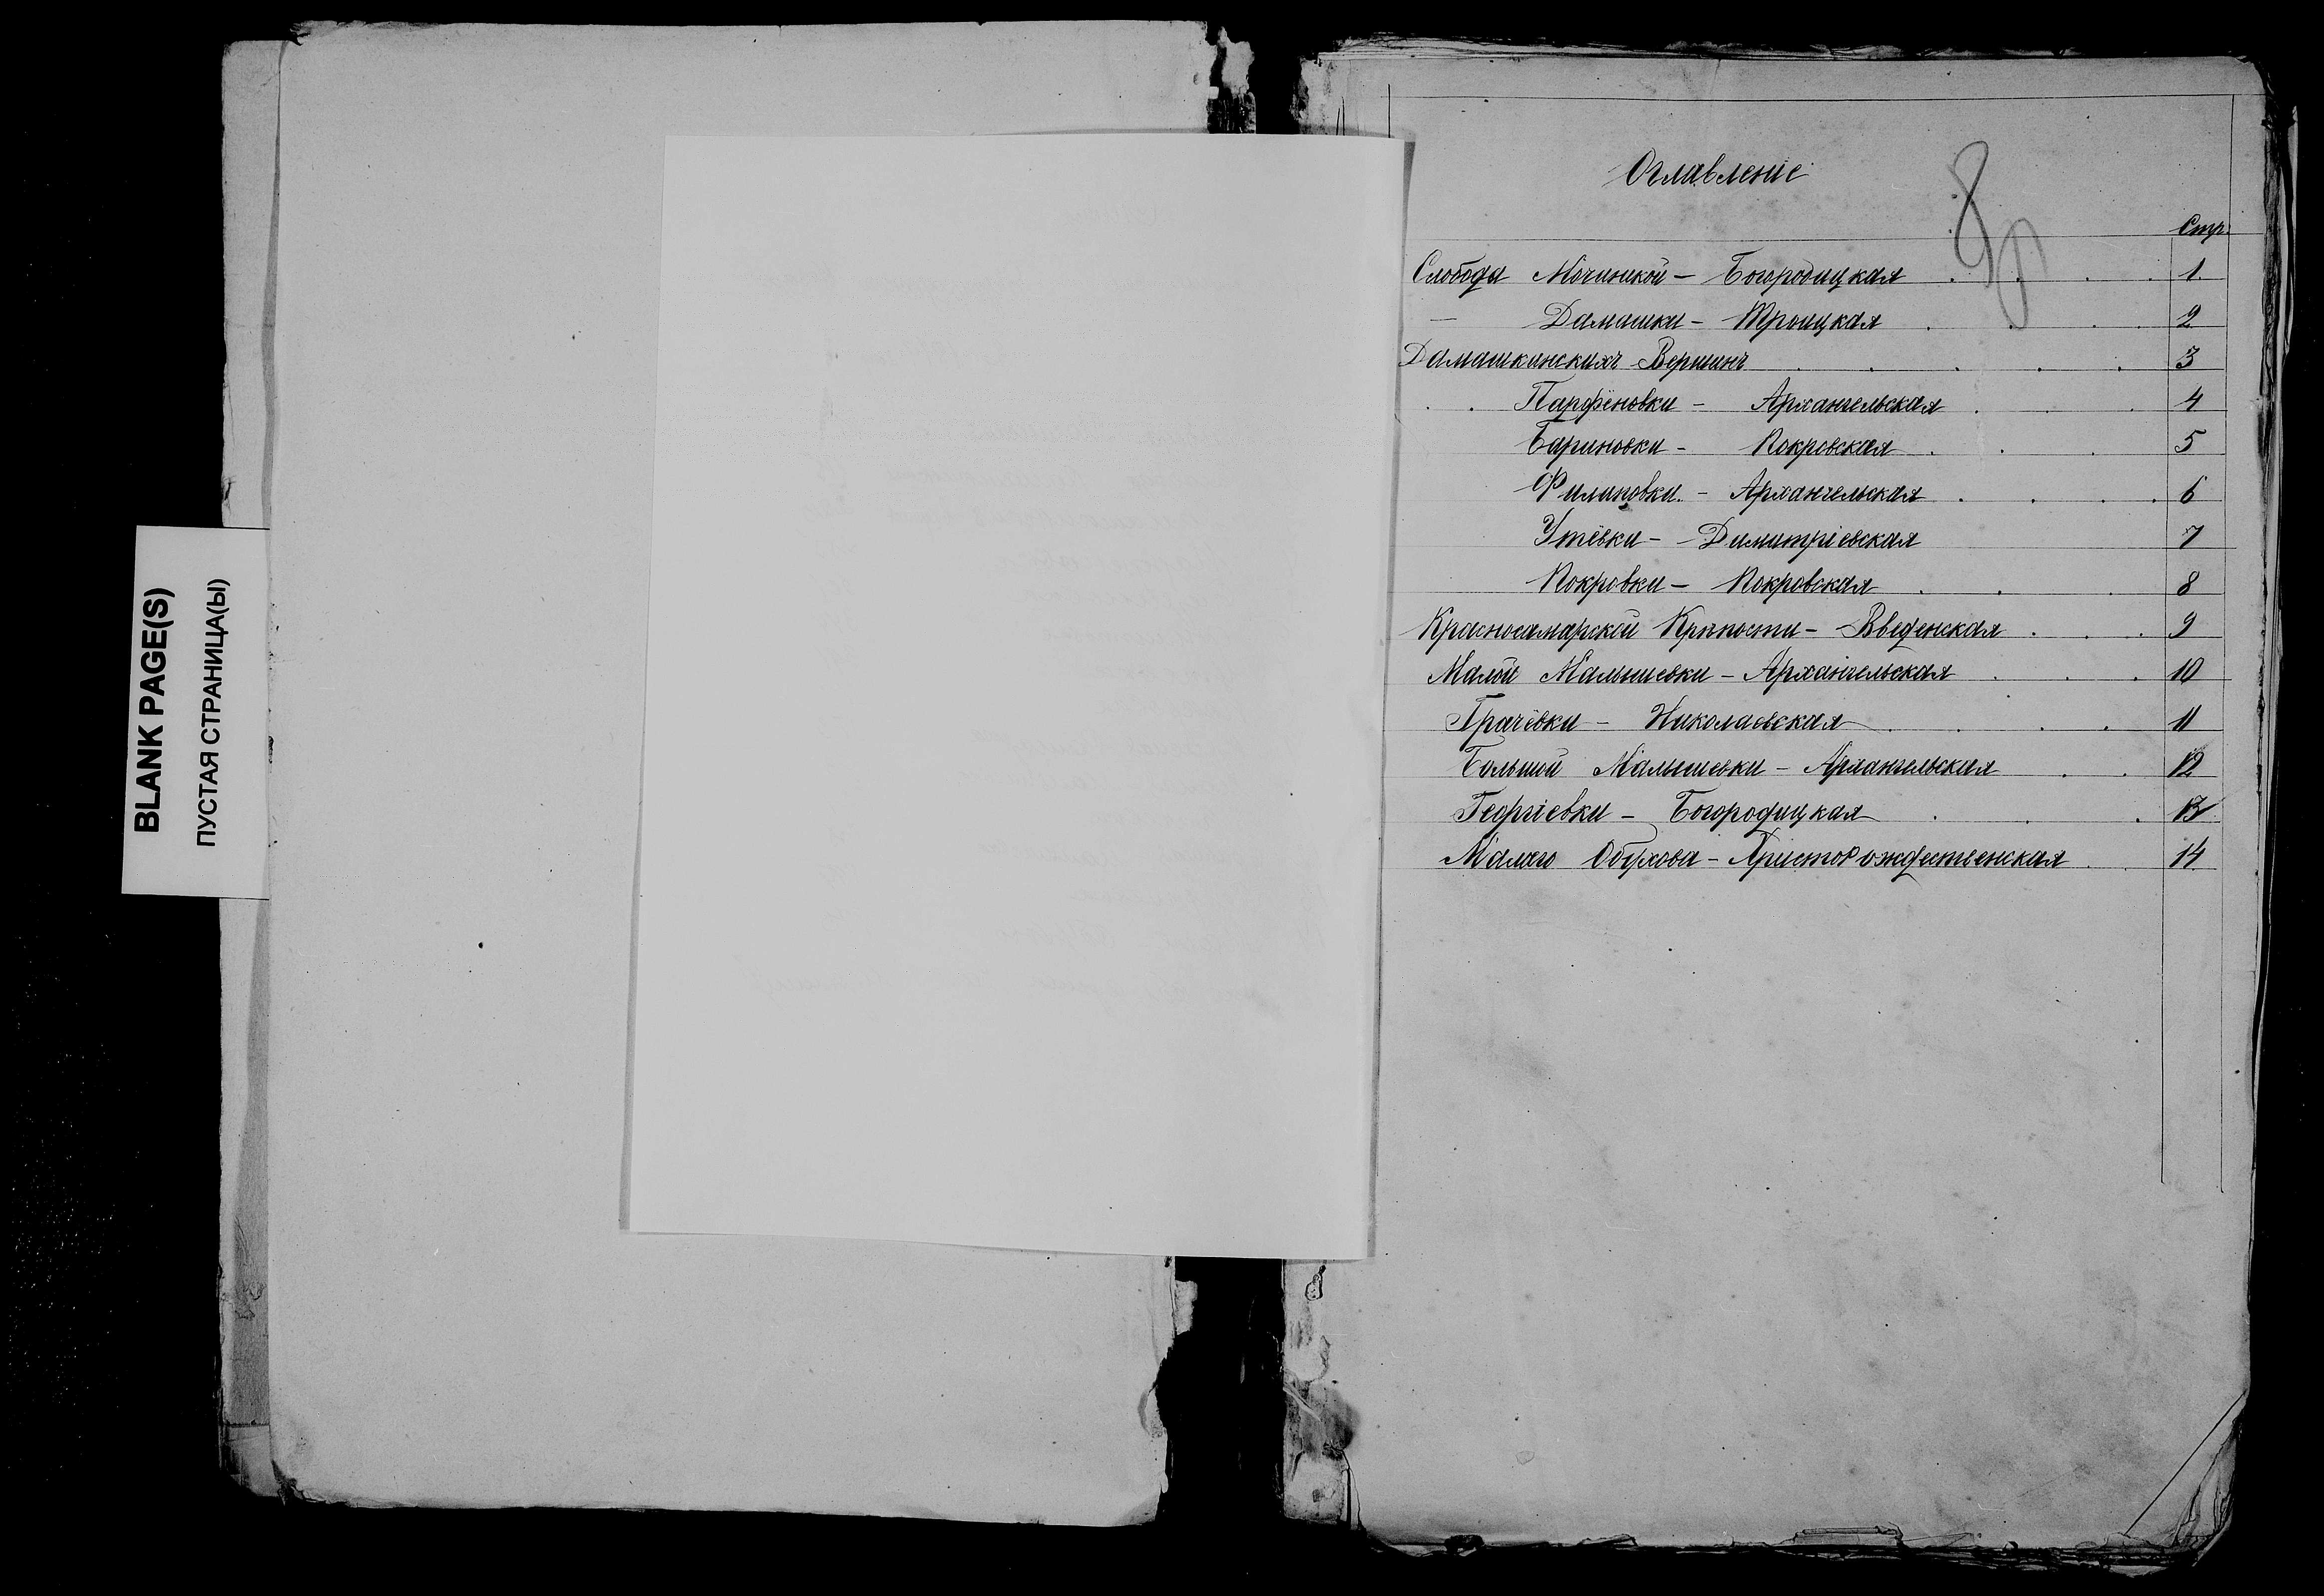 BLANK PAGE(S)
ПУСТАЯ СТРАНИЦА(Ы)
Оглавленіе
Стр.
Слобода Мочинской – Богородицкая . . . . 1.
– Домашки – Троицкая . . . . 2
Домашкинскихъ Вершинъ . . . . . 3
. . Парфёновки – Архангельская . . . 4
Бариновки – Покровская . . . 5
Филиповки – Архангельская . . . . 6
Утёвки – Димитріевская 7
Покровки – Покровская . . . 8
Красносамарской Крѣпости – Введенская . . . 9
Малой Малышевки – Архангельская . . . 10
Грачёвки – Николаевская . . . . 11
Большой Малышевки – Архангельская . . 12
Георгіевки – Богородицкая . . . 13
Малаго Обухова – Христорождественская . . 14